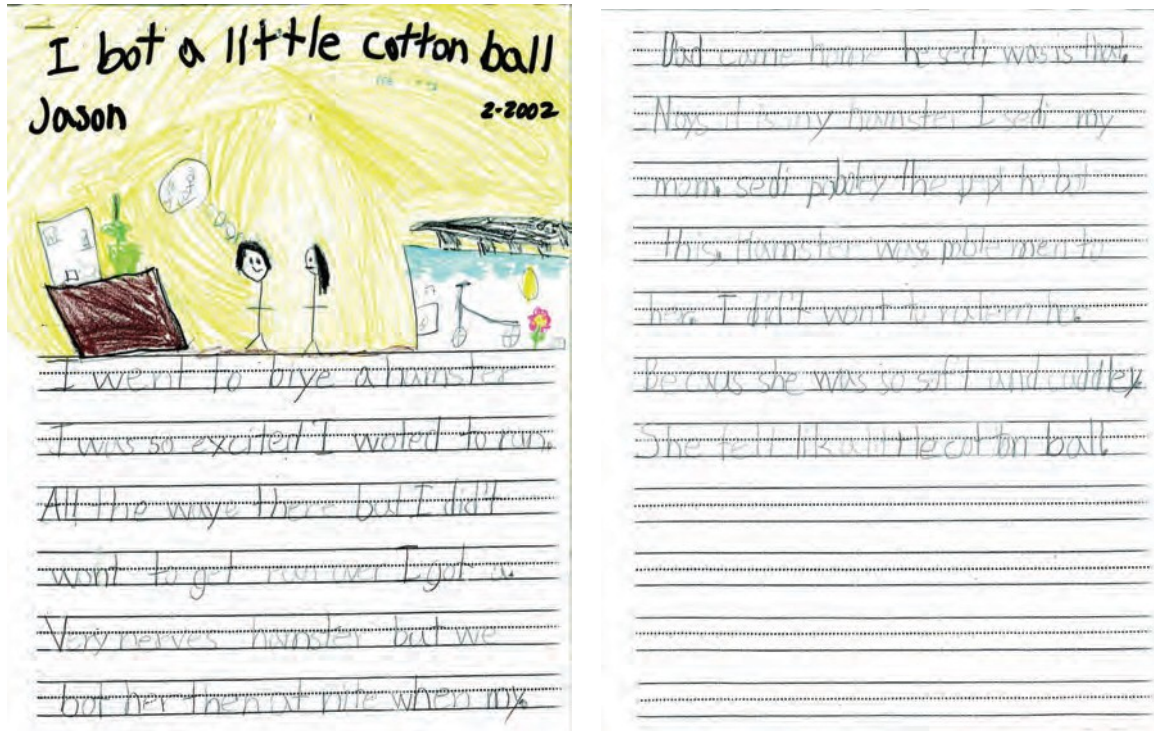 I bot a little cotton ball
Jason
2-2002
I went to biye a hamster
I was so excited I woted to run.
All the waye there but I did't
wont to get run over I got a.
Very nerves hamster but we
bot her then at nite when my.
Dad came home he sedi was is that.
Noys it is my hamster I sedi my
mom. sedi the bot
this. Hamster was men to
her. I did't wont to her.
Be caus she was so soft and cuddley.
She felt lik a little cotton ball.